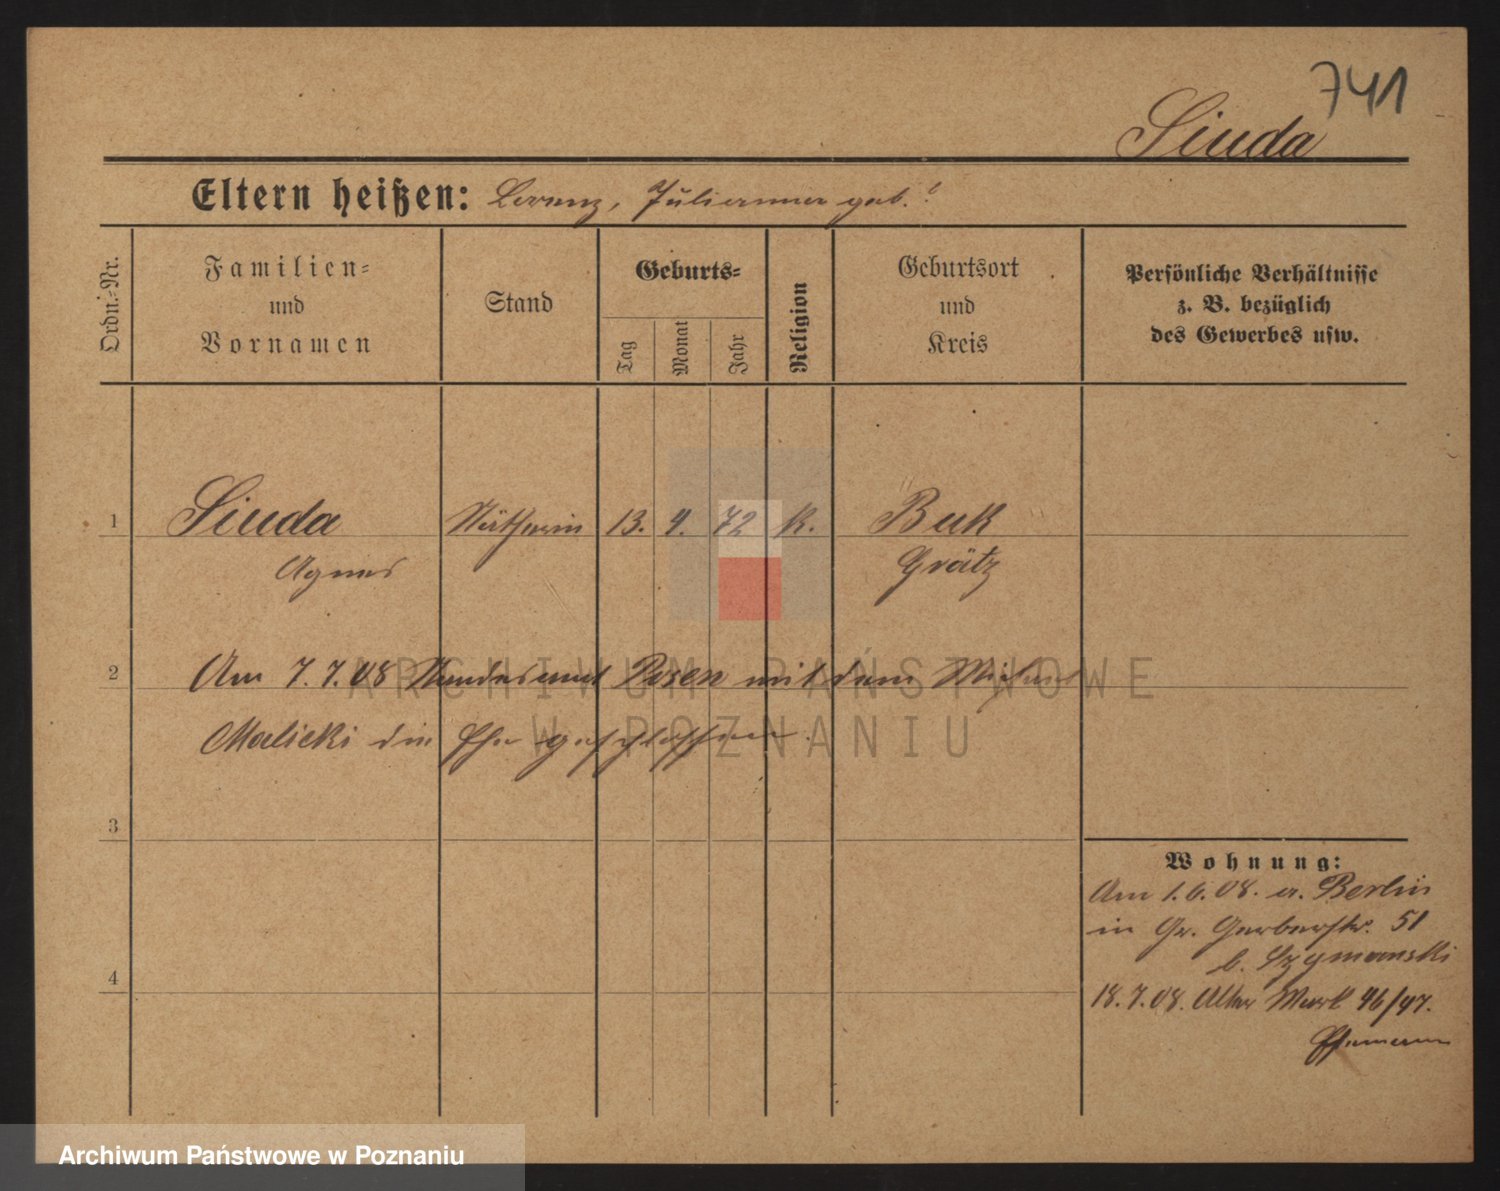 741
Siuda
Eltern heißen: Lorenz, Julianna geb. ?
Ordn.-Nr.
Familien-
und
Vornamen
Stand
Geburts-
Tag
Monat
Jahr
Religion
Geburtsort
und
Kreis
Persönliche Verhältnisse
z. B. bezüglich
des Gewerbes usw.
1 Siuda Nätherin 13. 4. 72 k. Buk
Agnes Grätz
2 Am 7.7.08 Standesamt Posen mit dem Michael
Malicki die Ehe geschlossen.
3
4
Wohnung:
Am 1.6.08. a. Berlin
in Gr. Gerberstr. 51
b. Szymanski
18.7.08. Alter Markt 46/47.
Ehemann
ARCHIWUM PAŃSTWOWE
W POZNANIU
Archiwum Państwowe w Poznaniu